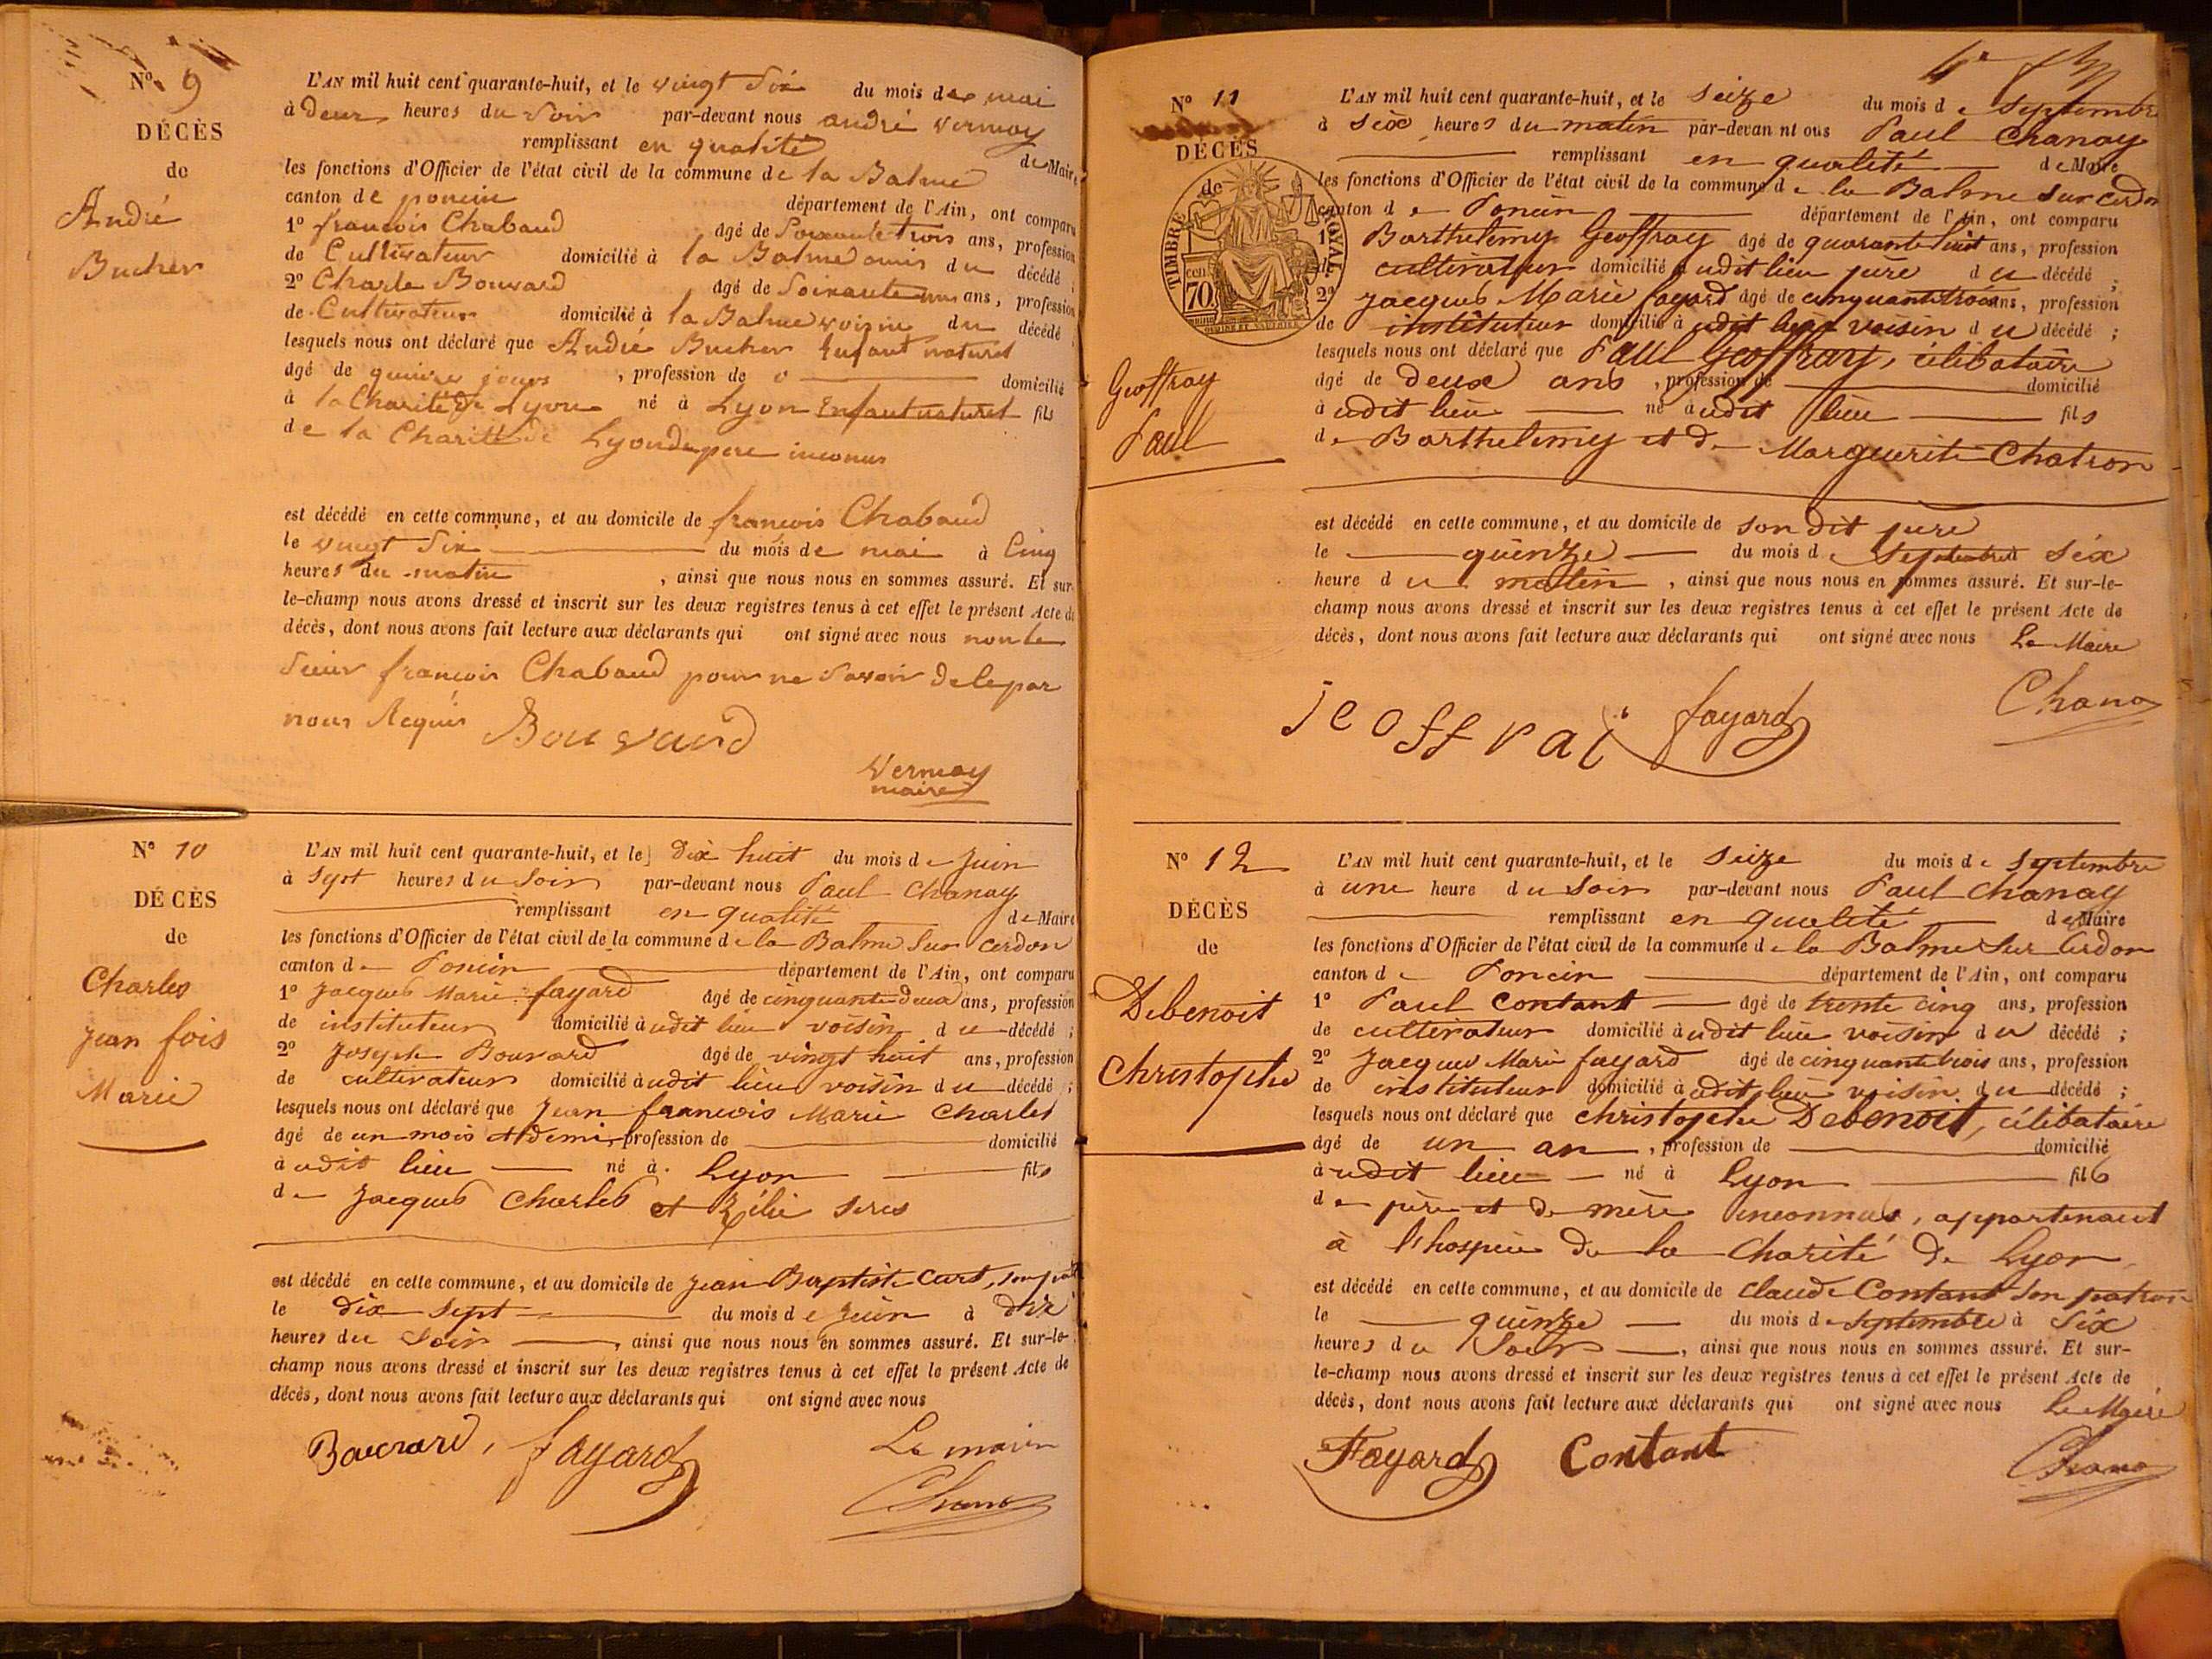 Nº 9
DÉCÈS
de
André
Bucher
L'AN mil huit cent quarante-huit, et le vingt Six du mois de mai
à deux heures du Soir par-devant nous andré Vermay
remplissant en qualité de Maire
les fonctions d'Officier de l'état civil de la commune de la Balme
canton de poncin département de l'Ain, ont comparu
1º françois Chabaud âgé de Soixante trois ans, profession
de Cultivateur domicilié à la Balme amis du décédé ;
2º Charle Bouvard âgé de Soixante ans, profession
de Cultivateur domicilié à la Balme voisin du décédé ;
lesquels nous ont déclaré que André Bucher Enfant naturel
âgé de quinze jours , profession de domicilié
à la Charité de Lyon né à Lyon Enfant naturel fils
de la Charité de Lyon de pere inconus
est décédé en cette commune, et au domicile de françois Chabaud
le vingt Six du mois de mai à Cinq
heures du matin , ainsi que nous nous en sommes assuré. Et sur-
le-champ nous avons dressé et inscrit sur les deux registres tenus à cet effet le présent Acte de
décès, dont nous avons fait lecture aux déclarants qui ont signé avec nous non le
Sieur françois Chabaud pour ne Savoir de le par
nous Requis Bouvard
Vermay
maire
Nº 10
DÉCÈS
de
Charles
Jean fois
Marie
L'AN mil huit cent quarante-huit, et le dix huit du mois de Juin
à Sept heures du Soir par-devant nous Paul Chanay
remplissant en qualité de Maire
les fonctions d'Officier de l'état civil de la commune de la Balme Sur Cerdon
canton de Poncin département de l'Ain, ont comparu
1º Jacques Marie fayard âgé de cinquante deux ans, profession
de instituteur domicilié audit lieu voisin du décédé ;
2º Joseph Bouvard âgé de vingt huit ans, profession
de cultivateur domicilié audit lieu voisin du décédé ;
lesquels nous ont déclaré que Jean francois Marie Charles
âgé de un mois et demi, profession de domicilié
audit lieu né à Lyon fils
de Jacques Charles et Zélie Seres
est décédé en cette commune, et au domicile de Jean Baptiste Curt, son
le dix Sept du mois de Juin à dix
heures du Soir , ainsi que nous nous en sommes assuré. Et sur-le-
champ nous avons dressé et inscrit sur les deux registres tenus à cet effet le présent Acte de
décès, dont nous avons fait lecture aux déclarants qui ont signé avec nous
Bouvard, fayard Le maire
Chana
Nº 11
DÉCÈS
de
TIMBRE ROYAL
70 cen
Geoffray
Paul
L'AN mil huit cent quarante-huit, et le Seize du mois de Septembre
à Six heures du matin par-devan nt ous Paul Chanay
remplissant en qualité de Maire
les fonctions d'Officier de l'état civil de la commune de la Balme Sur Cerdon
canton de Poncin département de l'Ain, ont comparu
1º Barthelemy Geoffray âgé de quarante huit ans, profession
cultivateur domicilié audit lieu père du décédé ;
2º Jacques Marie fayard âgé de cinquante trois ans, profession
de instituteur domicilié à udit lieu voisin du décédé ;
lesquels nous ont déclaré que Paul Geoffray, célibataire
âgé de deux ans , profession de domicilié
à udit lieu né audit lieu fils
de Barthelemy et de Marguerite Chatron
est décédé en cette commune, et au domicile de son dit père
le quinze du mois de Septembre à Six
heure du matin , ainsi que nous nous en sommes assuré. Et sur-le-
champ nous avons dressé et inscrit sur les deux registres tenus à cet effet le présent Acte de
décès, dont nous avons fait lecture aux déclarants qui ont signé avec nous Le Maire
jeoffrai fayard Chana
Nº 12
DÉCÈS
de
Debenoit
Christophe
L'AN mil huit cent quarante-huit, et le Seize du mois de Septembre
à une heure du Soir par-devant nous Paul Chanay
remplissant en qualité de Maire
les fonctions d'Officier de l'état civil de la commune de la Balme Sur Cerdon
canton de Poncin département de l'Ain, ont comparu
1º Paul Contant âgé de trente cinq ans, profession
de cultivateur domicilié à udit lieu voisin du décédé ;
2º Jacques Marie fayard âgé de cinquante trois ans, profession
de instituteur domicilié à udit lieu voisin du décédé ;
lesquels nous ont déclaré que Christophe Debenoit, célibataire
âgé de un an , profession de domicilié
à udit lieu né à Lyon fils
de père et de mère inconnus, appartenant
à l'hospice de la Charité de Lyon
est décédé en cette commune, et au domicile de Claude Contant son patron
le quinze du mois de Septembre à Six
heures du Soir , ainsi que nous nous en sommes assuré. Et sur-
le-champ nous avons dressé et inscrit sur les deux registres tenus à cet effet le présent Acte de
décès, dont nous avons fait lecture aux déclarants qui ont signé avec nous Le Maire
Fayard Contant Chana